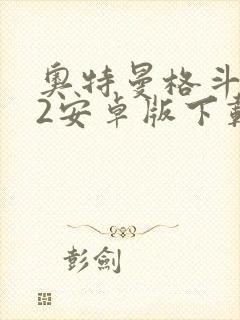 奥特曼格斗
2安卓版下载
彭剑